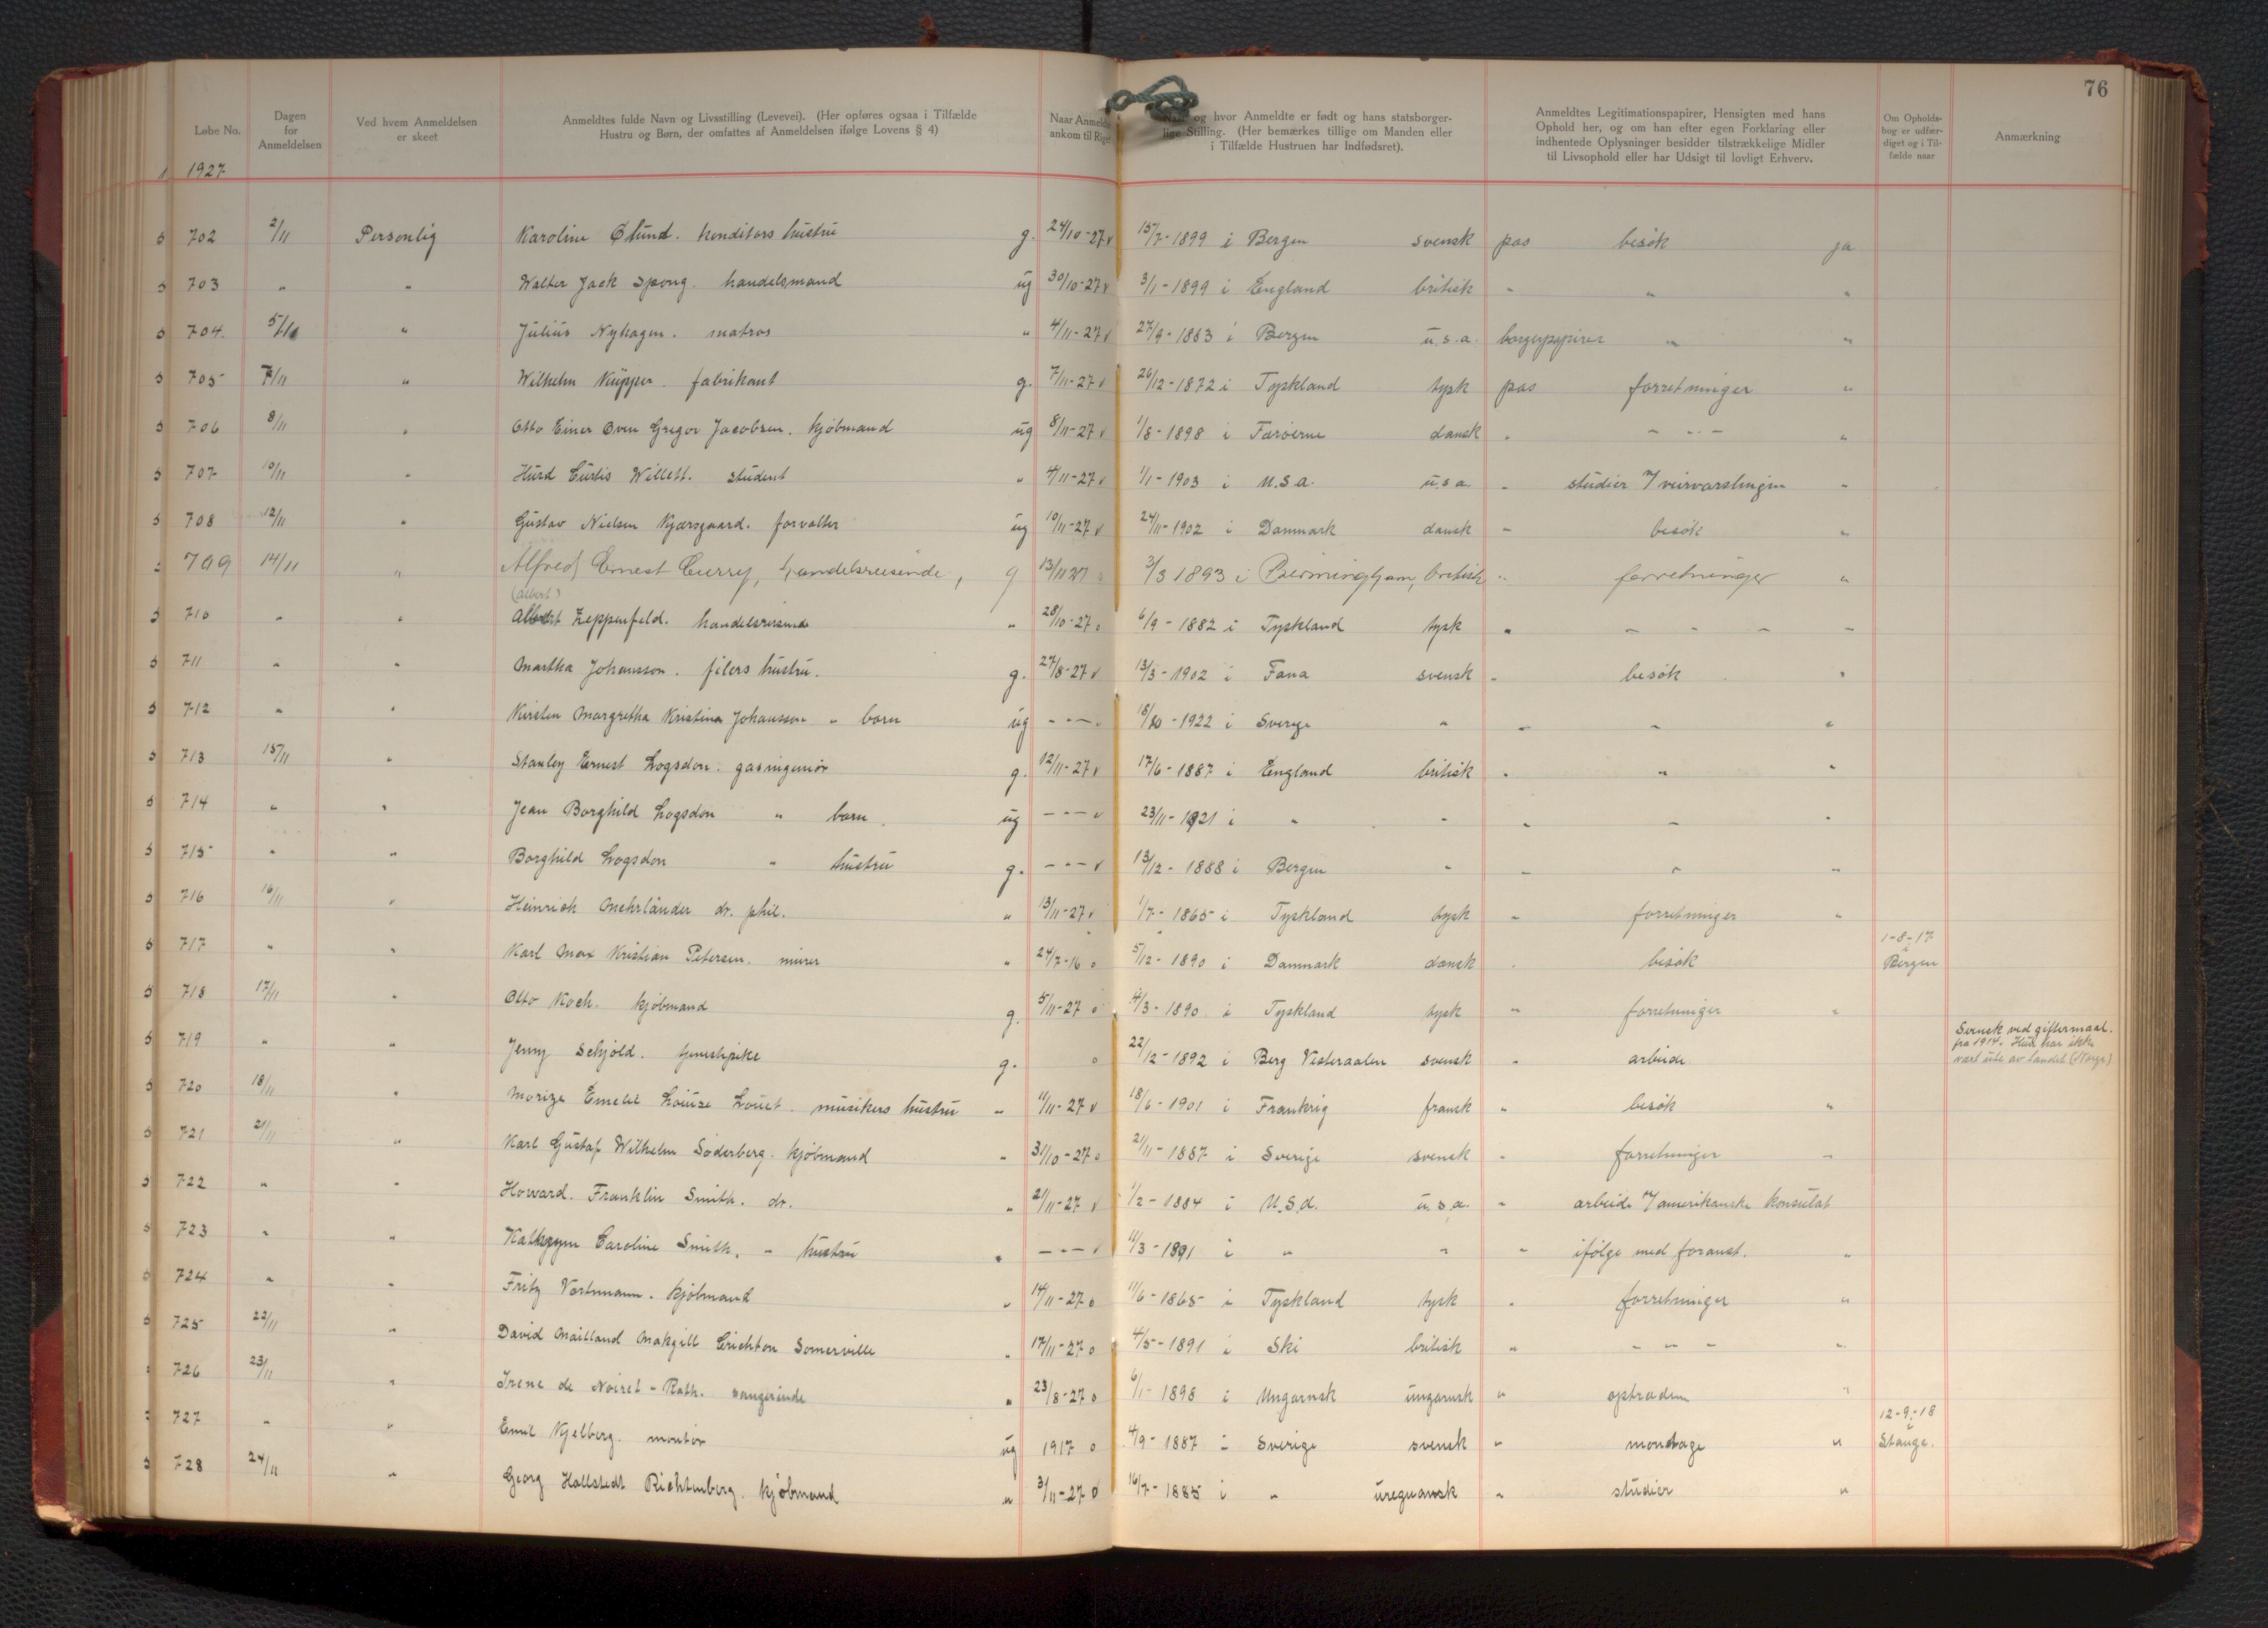 76
Løbe No. Dagen for Anmeldelsen Ved hvem Anmeldelsen er skeet Anmeldtes fulde Navn og Livsstilling (Levevei). (Her opføres ogsaa i Tilfælde Hustru og Børn, der omfattes af Anmeldelsen ifølge Lovens § 4) Naar Anmeldte ankom til Riget og hvor Anmeldte er født og hans statsborgerlige Stilling. (Her bemærkes tillige om Manden eller i Tilfælde Hustruen har Indfødsret). Anmeldtes Legitimationspapirer, Hensigten med hans Ophold her, og om han efter egen Forklaring eller indhentede Oplysninger besidder tilstrækkelige Midler til Livsophold eller har Udsigt til lovligt Erhverv. Om Opholdsbog er udfærdiget og i Tilfælde naar Anmærkning
1927
702 2/11 Personlig Karoline Ølund. konditors hustru g. 24/10-27 15/7-1899 i Bergen svensk pas besøk ja
703 " " Walter Jack Spong. handelsmand ug 30/10-27 3/1-1899 i England britisk " " "
704. 5/11 " Julius Nyhagen. matros " 4/11-27 27/9-1883 i Bergen u.s.a. borgerpapirer " "
705 7/11 " Wilhelm Küpper. fabrikant g. 7/11-27 26/12-1872 i Tyskland tysk pas forretninger "
706 8/11 " Otto Einer Oven Gregor Jacobsen. kjøbmand ug 8/11-27 1/8-1898 i Færøerne dansk " - " - "
707 10/11 " Hurd Curtis Willett. student " 4/11-27 1/1-1903 i U.S.a. u.s.a. " studier v/ veirvarslingen "
708 12/11 " Gustav Nielsen Kjærsgaard. forvalter ug 10/11-27 24/11-1902 i Danmark dansk " besøk "
709 14/11 " Alfred Ernest Curry, handelsreisende, g 13/11 27 3/3 1893 i Birmingham, britisk " forretninger "
(albert)
710 " " Albert Zeppenfeld. handelsreisende " 28/10-27 6/9-1882 i Tyskland tysk " - - - -
711 " " Martha Johansson. filers hustru. g. 27/8-27 13/3-1902 i Fana svensk " besøk "
712 " " Kirsten Margretha Kristina Johansson " barn ug - " - 18/10-1922 i Sverige " " " "
713 15/11 " Stanley Ernest Logsdon. gasingeniør g. 12/11-27 17/6-1887 i England britisk " " "
714 " " Jean Borghild Logsdon " barn ug - " - 23/11-1921 i " " " " "
715 " " Borghild Logsdon " hustru g. - " - 13/12-1888 i Bergen " " " "
716 16/11 " Heinrich Mehrländer dr. phil. " 13/11-27 1/7-1865 i Tyskland tysk " forretninger "
717 " " Karl Max Kristian Petersen. murer " 24/7-16 5/12-1890 i Danmark dansk " besøk 1-8-17 i Bergen
718 17/11 " Otto Koch. kjøbmand g. 5/11-27 4/3-1890 i Tyskland tysk " forretninger "
719 " " Jenny Schjold. tjenestpike g. 22/12-1892 i Berg Vesteraalen svensk " arbeide Svensk ved giftermaal. fra 1914. Hun har ikke vært ute av landet (Norge)
720 18/11 " Morize Emelie Louize Louet. musikers hustru " 11/11-27 18/6-1901 i Frankrig fransk " besøk "
721 21/11 " Karl Gustaf Wilhelm Søderberg. kjøbmand " 31/10-27 21/11-1887 i Sverige svensk " forretninger "
722 " " Howard. Franklin Smith. dr. " 21/11-27 1/2-1884 i U.S.a. u.s.a. " arbeide v/ amerikanske konsulat
723 " " Kathryn Caroline Smith. " hustru " - " - 11/3-1891 i " " " ifølge med foranst. "
724 " " Fritz Vortmann. kjøbmand " 14/11-27 11/6-1865 i Tyskland tysk " forretninger "
725 22/11 " David Maitland Makgill Crichton Somerville " 17/11-27 4/5-1891 i Ski britisk " - " - "
726 23/11 " Irene de Noiret-Rath. sangerinde " 23/8-27 6/1-1898 i Ungarnsk ungarnsk " optræden "
727 " " Emil Kjelberg. montør ug 1917 4/9-1887 i Sverige svensk " montage " 12-9-18 i Stange.
728 24/11 " Georg Hallstedt Richtenberg. kjøbmand " 3/11-27 16/7-1885 i " ureguansk " studier "